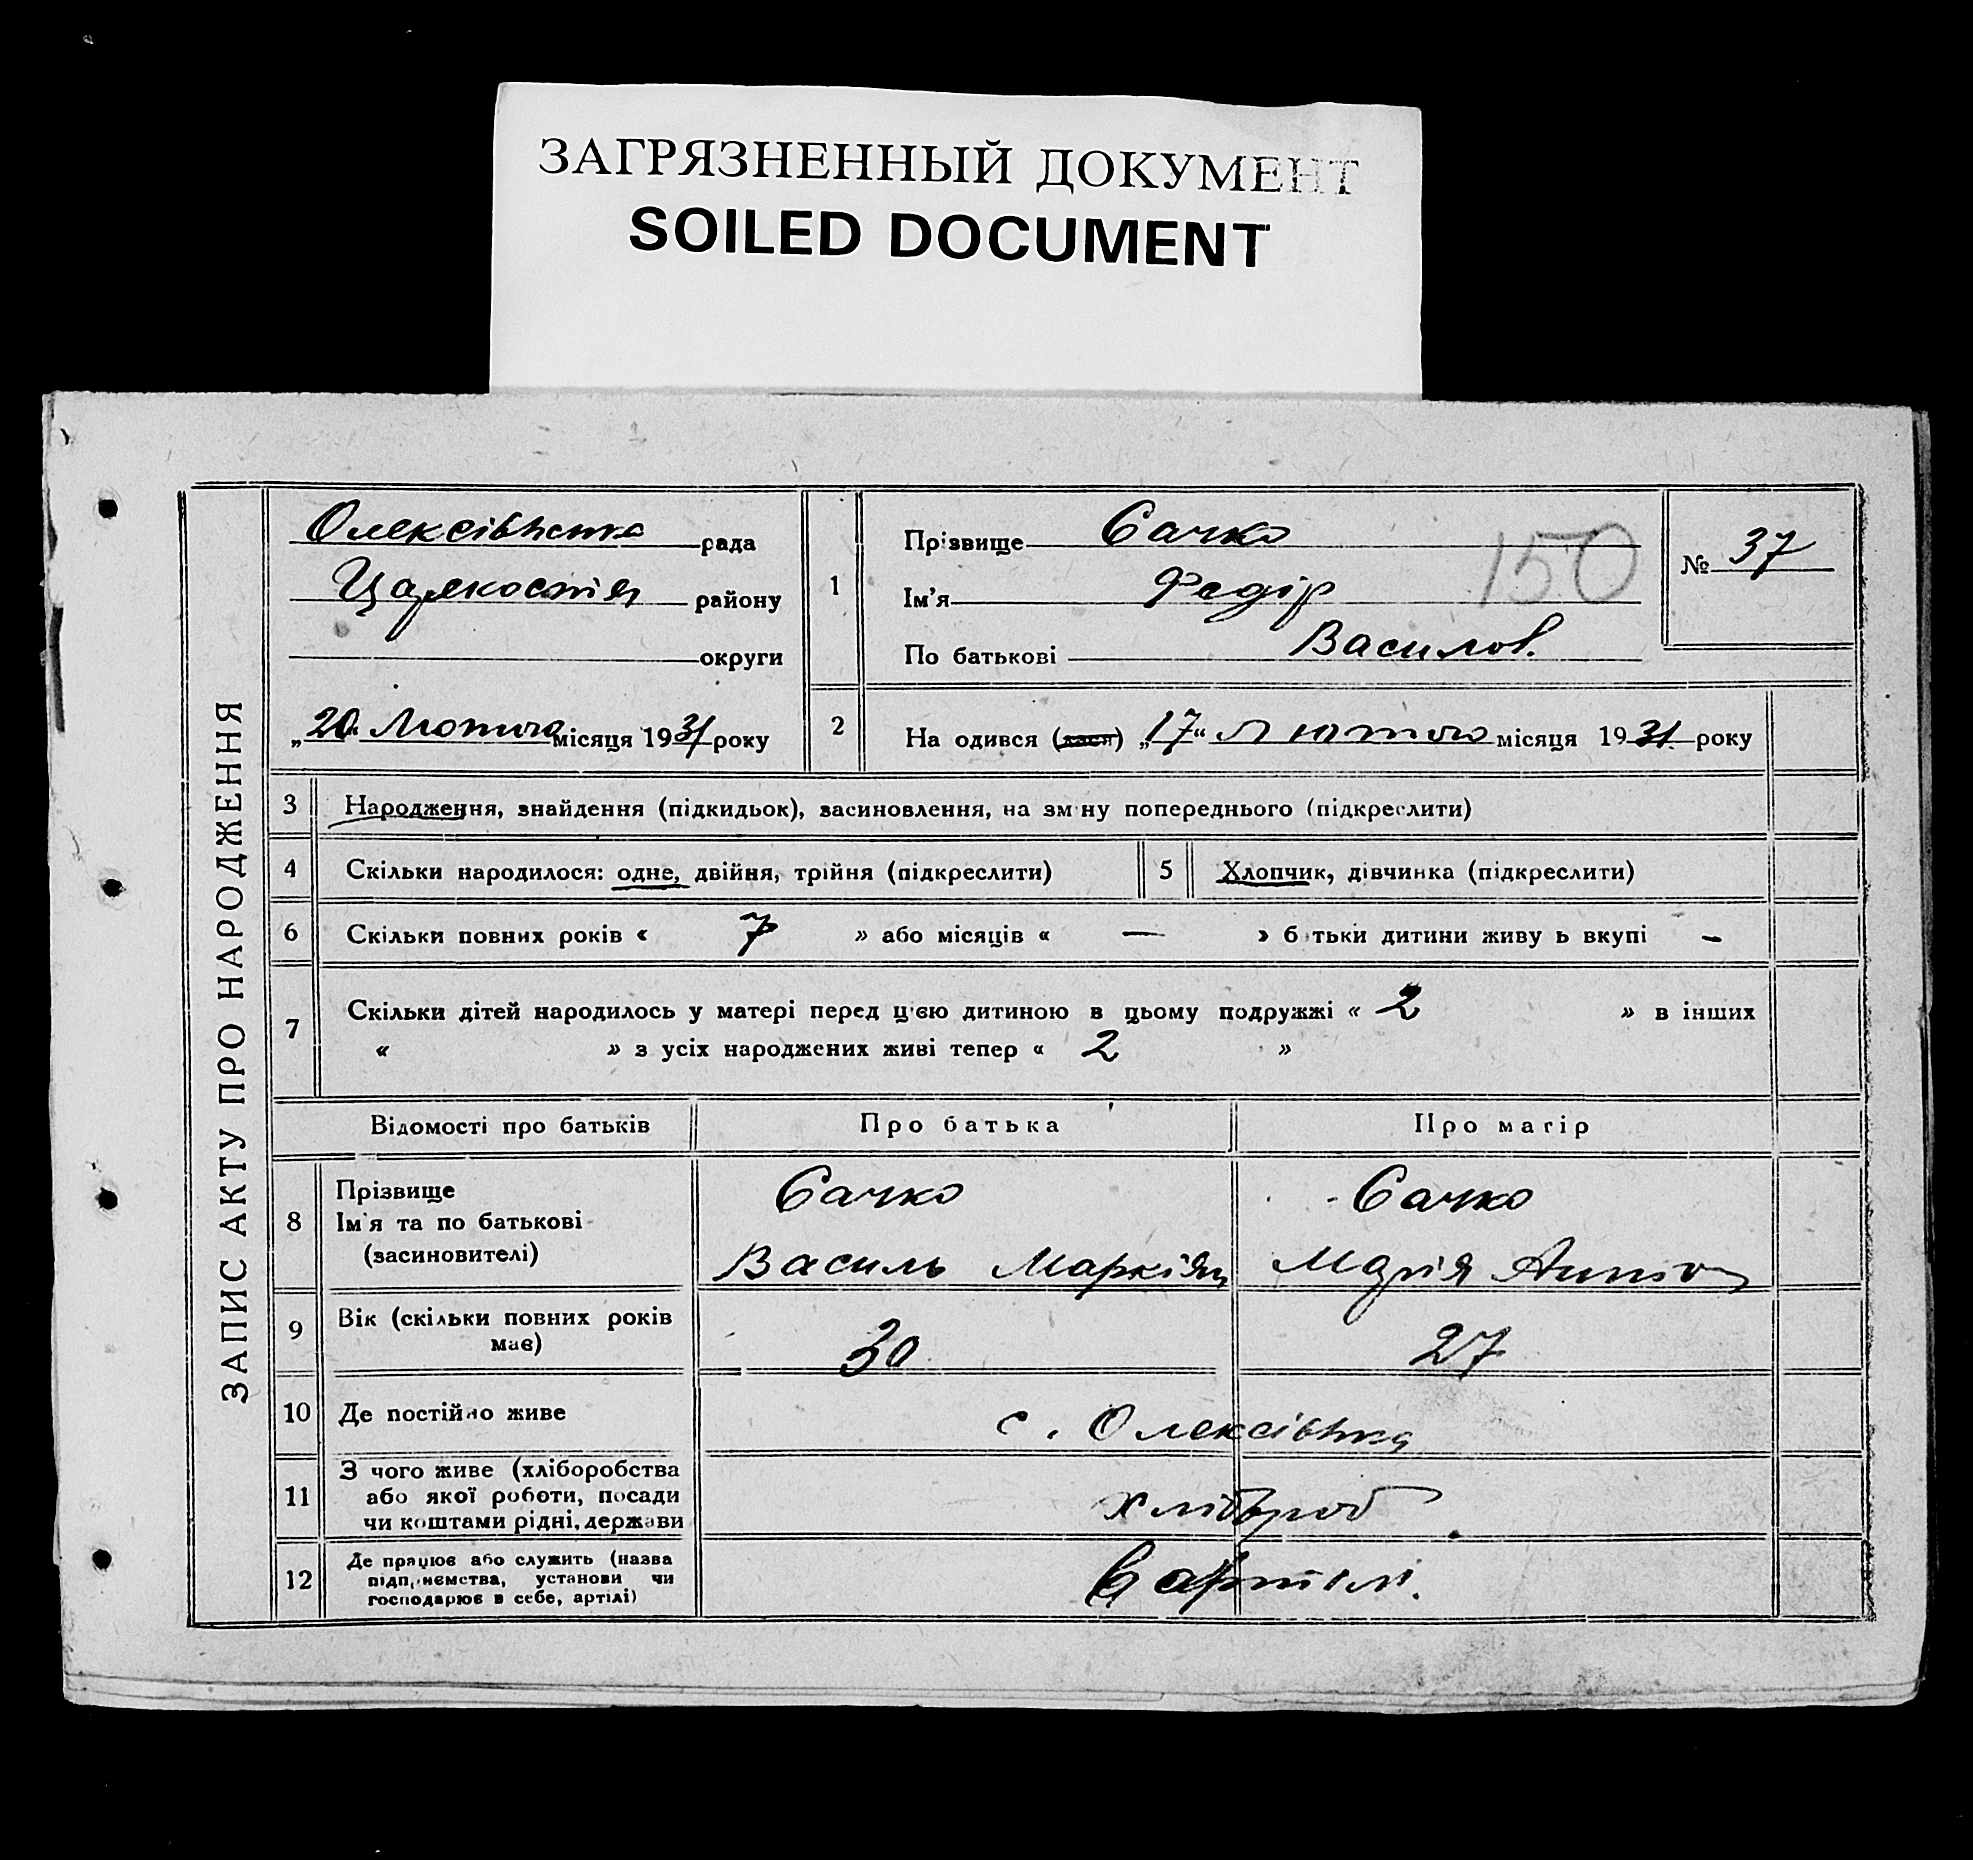 ЗАГРЯЗНЕННЫЙ ДОКУМЕНТ
SOILED DOCUMENT
ЗАПИС АКТУ ПРО НАРОДЖЕННЯ
Олексівська рада
району
округи
„20“ Лютого місяця 1931 року
1
Прізвище Сачко
150
Ім’я Федір
По батькові Василов.
№ 37
2 На одився (лася) „17“ Лютого місяця 1931 року
3 Народження, знайдення (підкидьок), засиновлення, на зм ну попереднього (підкреслити)
4 Скільки народилося: одне, двійня, трійня (підкреслити)
5 Хлопчик, дівчинка (підкреслити)
6 Скільки повних років « 7 » або місяців « — » б тьки дитини живу ь вкупі –
7 Скільки дітей народилось у матері перед ц'єю дитиною в цьому подружжі « 2 » в інших
« » з усіх народжених живі тепер « 2 »
Відомості про батьків Про батька Про матір
8 Прізвище
Ім'я та по батькові
(засиновителі)
Сачко
Василь Маркіян
Сачко
Марія
9 Вік (скільки повних років
має)
30 27
10 Де постійно живе с. Олексівка
11 З чого живе (хліборобства
або якої роботи, посади
чи коштами рідні, держави
хлібороб
12 Де працює або служить (назва
підприємства, установи чи
господарює в себе, артілі)
в артілі.